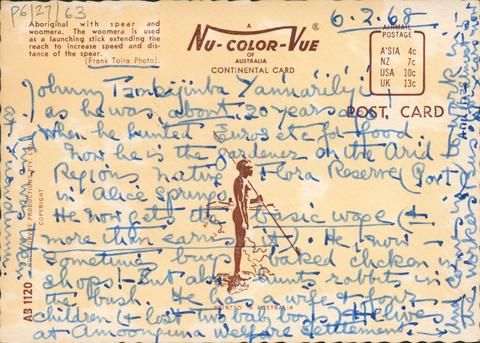 P6/27/63
Aboriginal with spear and
woomera. The woomera is used
as a launching stick extending the
reach to increase speed and dis-
tance of the spear.
(Frank Tojra Photo).
A
NU-COLOR-VUE ®
OF
AUSTRALIA
CONTINENTAL CARD
6.2.68
AIRMAIL
POSTAGE
A'SIA 4c
NZ 7c
USA 10c
UK 13c
POST CARD
Johnny
as he was about 20 years ago
When he hunted Euros etc for food.
Now he is the gardener on the Arid
Regions Native Flora Reserve (Govt
in Alice Springs
He now gets the basic wage (&
more than earns it). He now
Sometimes buys baked chicken in
shops! But also hunts rabbits in
the bush. He has a wife & four
children (& lost two baby boys). He lives
at Amoonguna Welfare Settlement.
AB 1120
COPYRIGHT
PRINTED IN AUSTRALIA